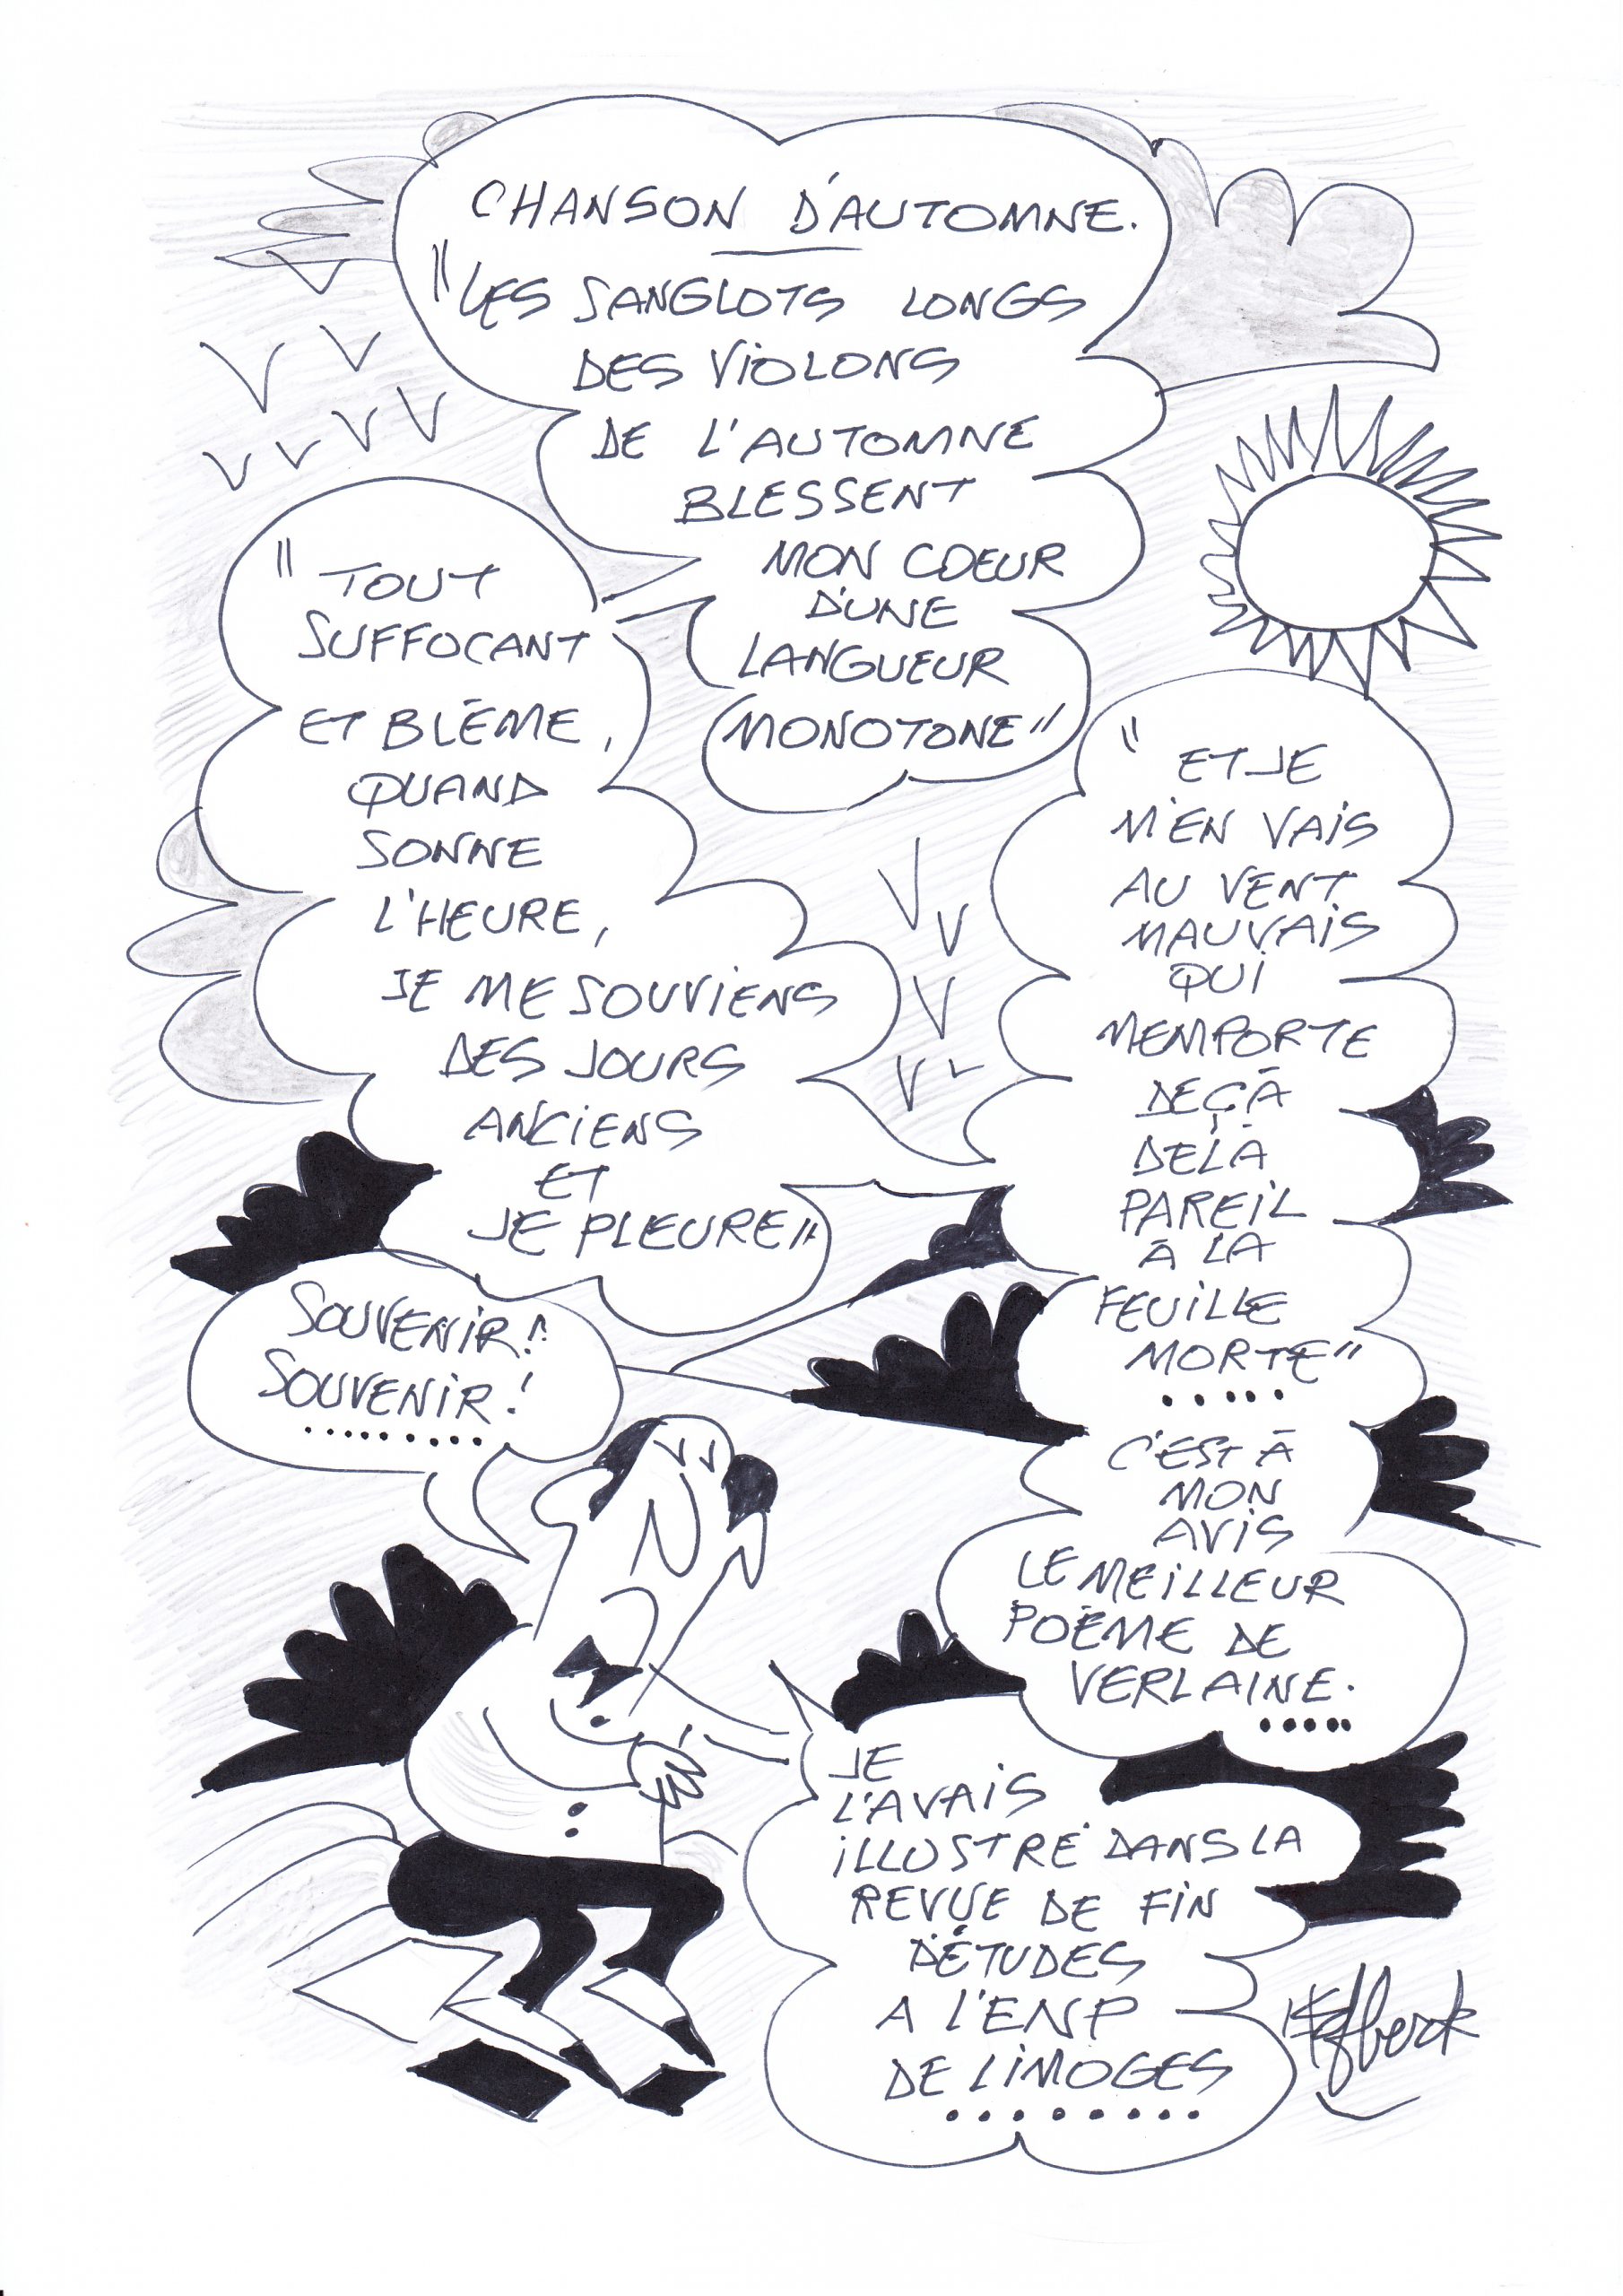 CHANSON D'AUTOMNE.
"LES SANGLOTS LONGS
DES VIOLONS
DE L'AUTOMNE
BLESSENT
MON COEUR
D'UNE
LANGUEUR
MONOTONE"
"TOUT
SUFFOCANT
ET BLÊME,
QUAND
SONNE
L'HEURE,
JE ME SOUVIENS
DES JOURS
ANCIENS
ET
JE PLEURE"
"ET JE
M'EN VAIS
AU VENT
MAUVAIS
QUI
M'EMPORTE
DEÇÀ
DELÀ
PAREIL
À LA
FEUILLE
MORTE"
.....
C'EST À
MON
AVIS
LE MEILLEUR
POÈME DE
VERLAINE.
.....
SOUVENIR!
SOUVENIR!
.........
JE
L'AVAIS
ILLUSTRÉ DANS LA
REVUE DE FIN
D'ÉTUDES
A L'ENP
DE LIMOGES
........